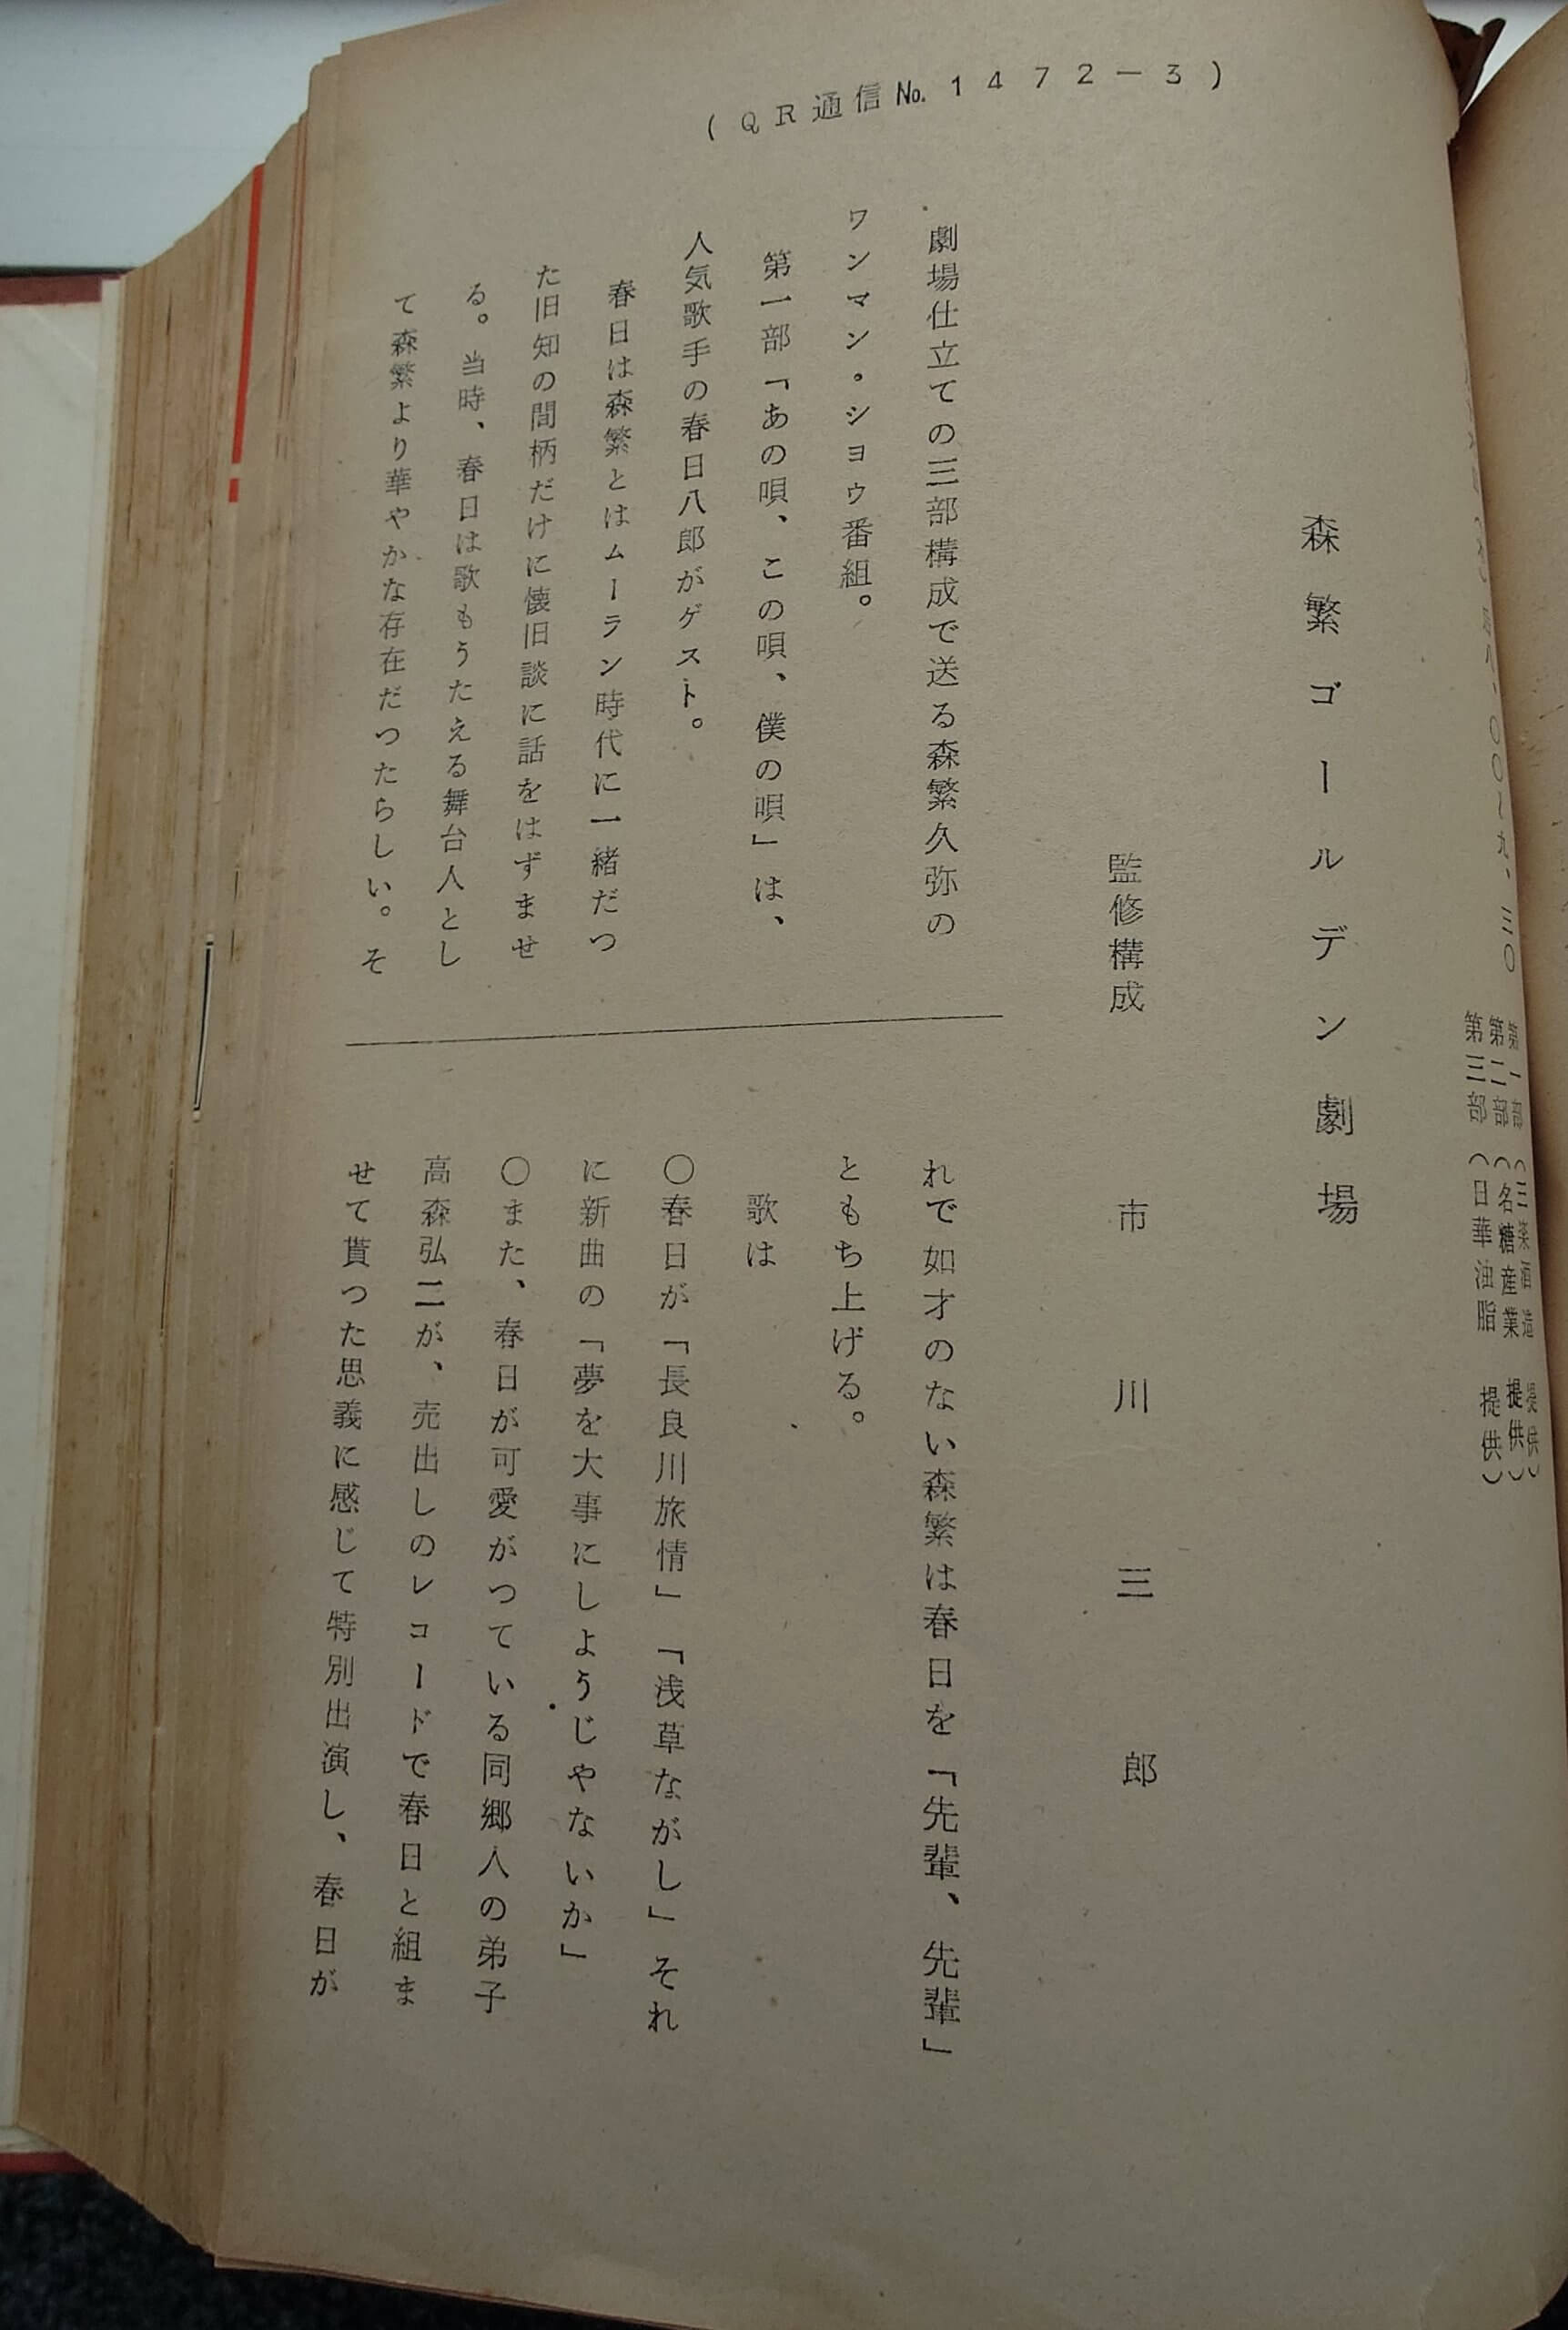 (QR通信No.1472-3)
第一部(三楽酒造 提供)
第二部(名糖産業 提供)
第三部(日華油脂 提供)
森繁ゴールデン劇場
監修構成 市川三郎
劇場仕立ての三部構成で送る森繁久弥の
ワンマン・シヨウ番組。
第一部「あの唄、この唄、僕の唄」は、
人気歌手の春日八郎がゲスト。
春日は森繁とはムーラン時代に一緒だつ
た旧知の間柄だけに懐旧談に話をはずませ
る。当時、春日は歌もうたえる舞台人とし
て森繁より華やかな存在だつたらしい。そ
れで如才のない森繁は春日を「先輩、先輩」
ともち上げる。
歌は
○春日が「長良川旅情」「浅草ながし」それ
に新曲の「夢を大事にしようじやないか」
○また、春日が可愛がつている同郷人の弟子
高森弘二が、売出しのレコードで春日と組ま
せて貰つた思義に感じて特別出演し、春日が